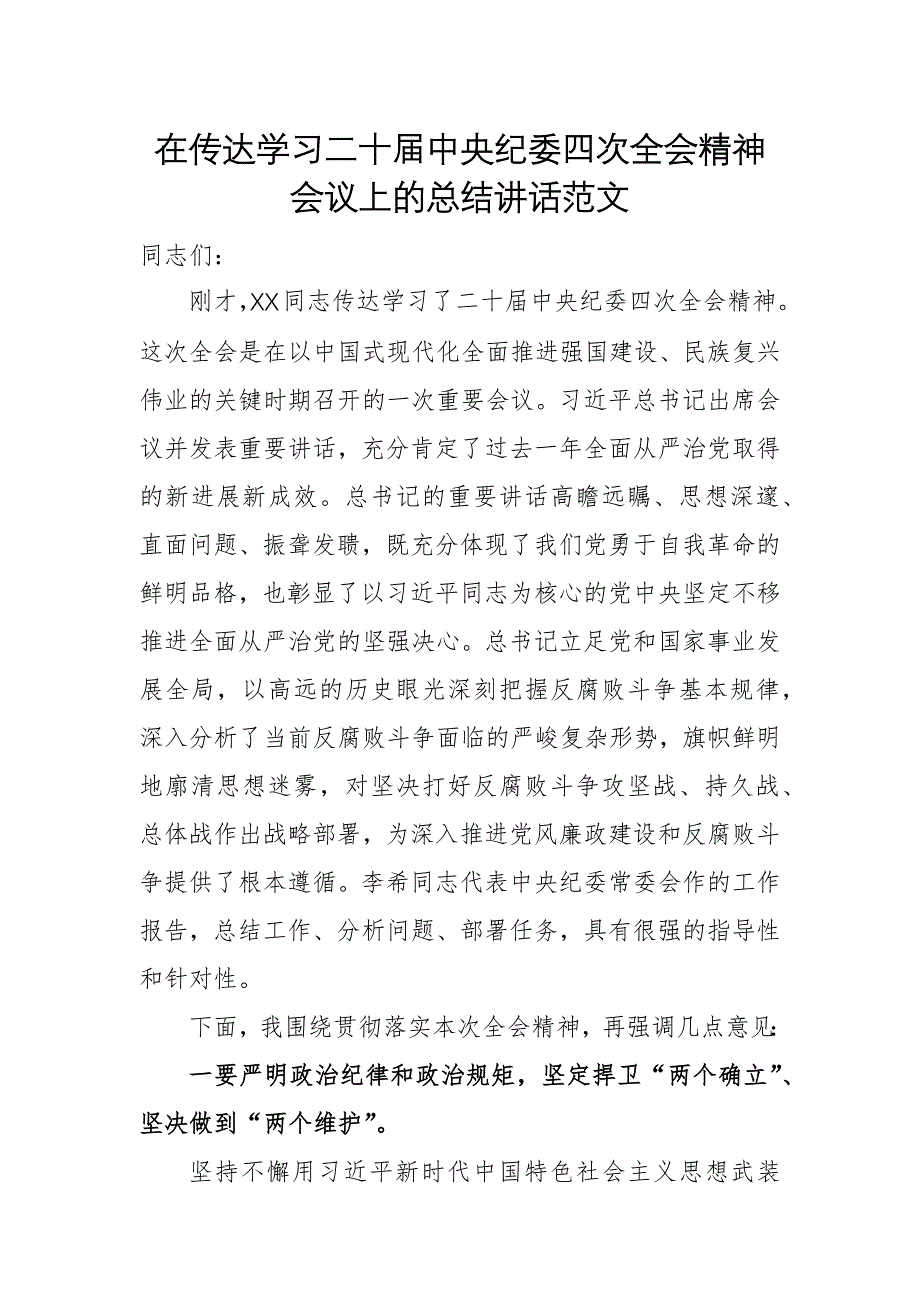 在传达学习二十届中央纪委四次全会精神
会议上的总结讲话范文
同志们：
刚才，XX同志传达学习了二十届中央纪委四次全会精神。
这次全会是在以中国式现代化全面推进强国建设、民族复兴
伟业的关键时期召开的一次重要会议。习近平总书记出席会
议并发表重要讲话，充分肯定了过去一年全面从严治党取得
的新进展新成效。总书记的重要讲话高瞻远瞩、思想深邃、
直面问题、振聋发聩，既充分体现了我们党勇于自我革命的
鲜明品格，也彰显了以习近平同志为核心的党中央坚定不移
推进全面从严治党的坚强决心。总书记立足党和国家事业发
展全局，以高远的历史眼光深刻把握反腐败斗争基本规律，
深入分析了当前反腐败斗争面临的严峻复杂形势，旗帜鲜明
地廓清思想迷雾，对坚决打好反腐败斗争攻坚战、持久战、
总体战作出战略部署，为深入推进党风廉政建设和反腐败斗
争提供了根本遵循。李希同志代表中央纪委常委会作的工作
报告，总结工作、分析问题、部署任务，具有很强的指导性
和针对性。
下面，我围绕贯彻落实本次全会精神，再强调几点意见：
一要严明政治纪律和政治规矩，坚定捍卫“两个确立”、
坚决做到“两个维护”。
坚持不懈用习近平新时代中国特色社会主义思想武装